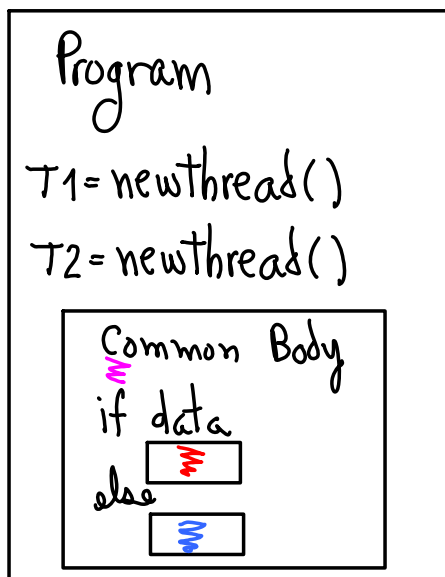 Program
T1=newthread()
T2=newthread()
Common Body
if data
else